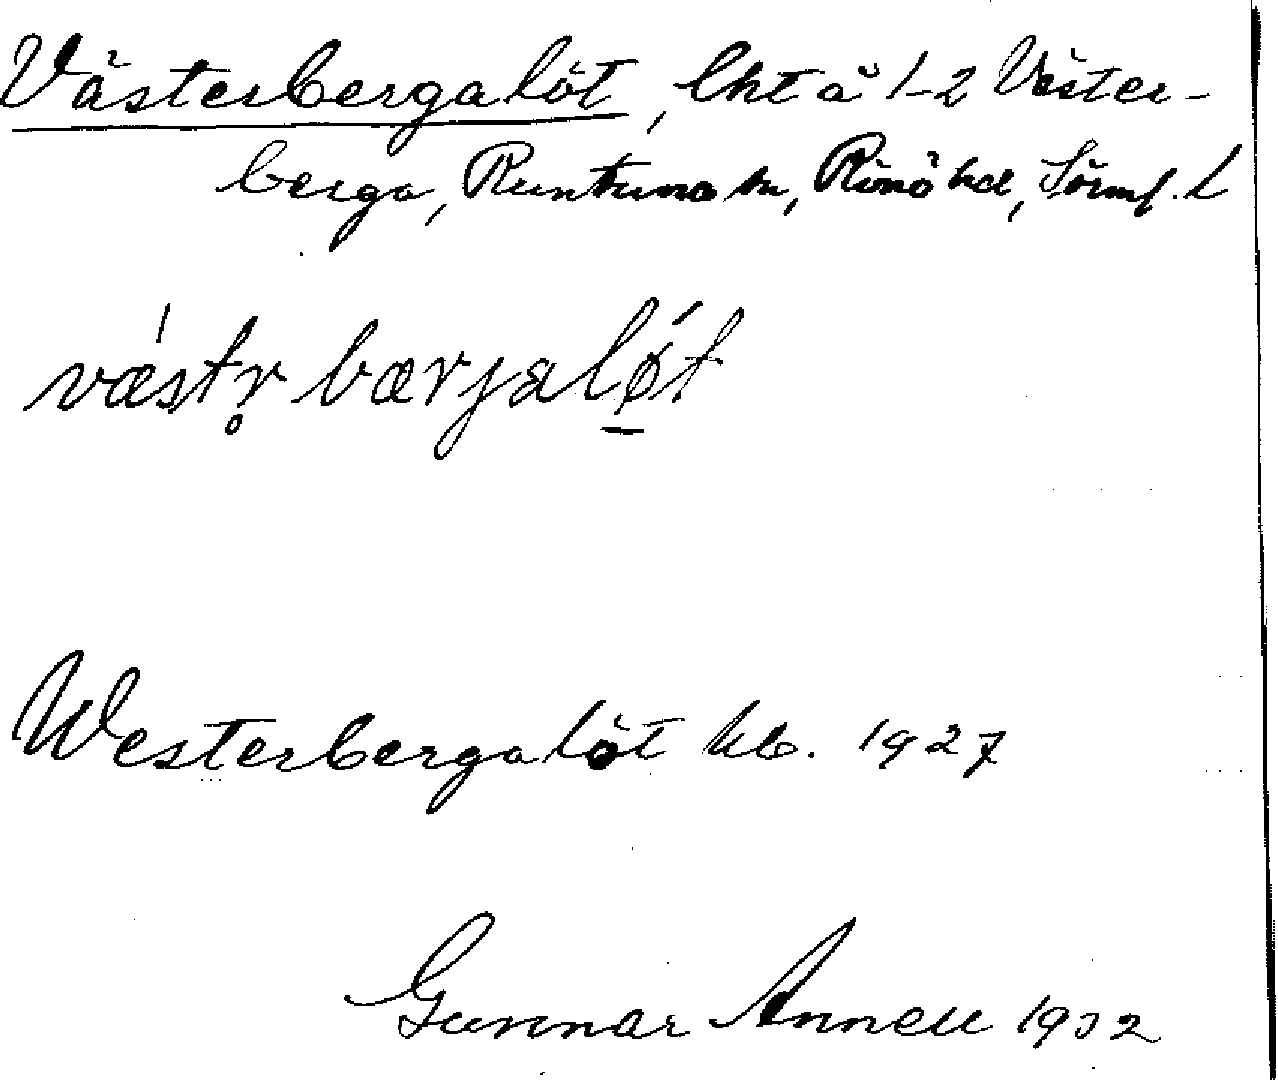 Västerbergalöt, lht å 1-2 Väster-
berga, Runtuna sn, Rönö hd, Sörml. L
væ̀str̥bærjalǿ̱t
Westerbergalöt kb. 1927
Gunnar Annell 1932